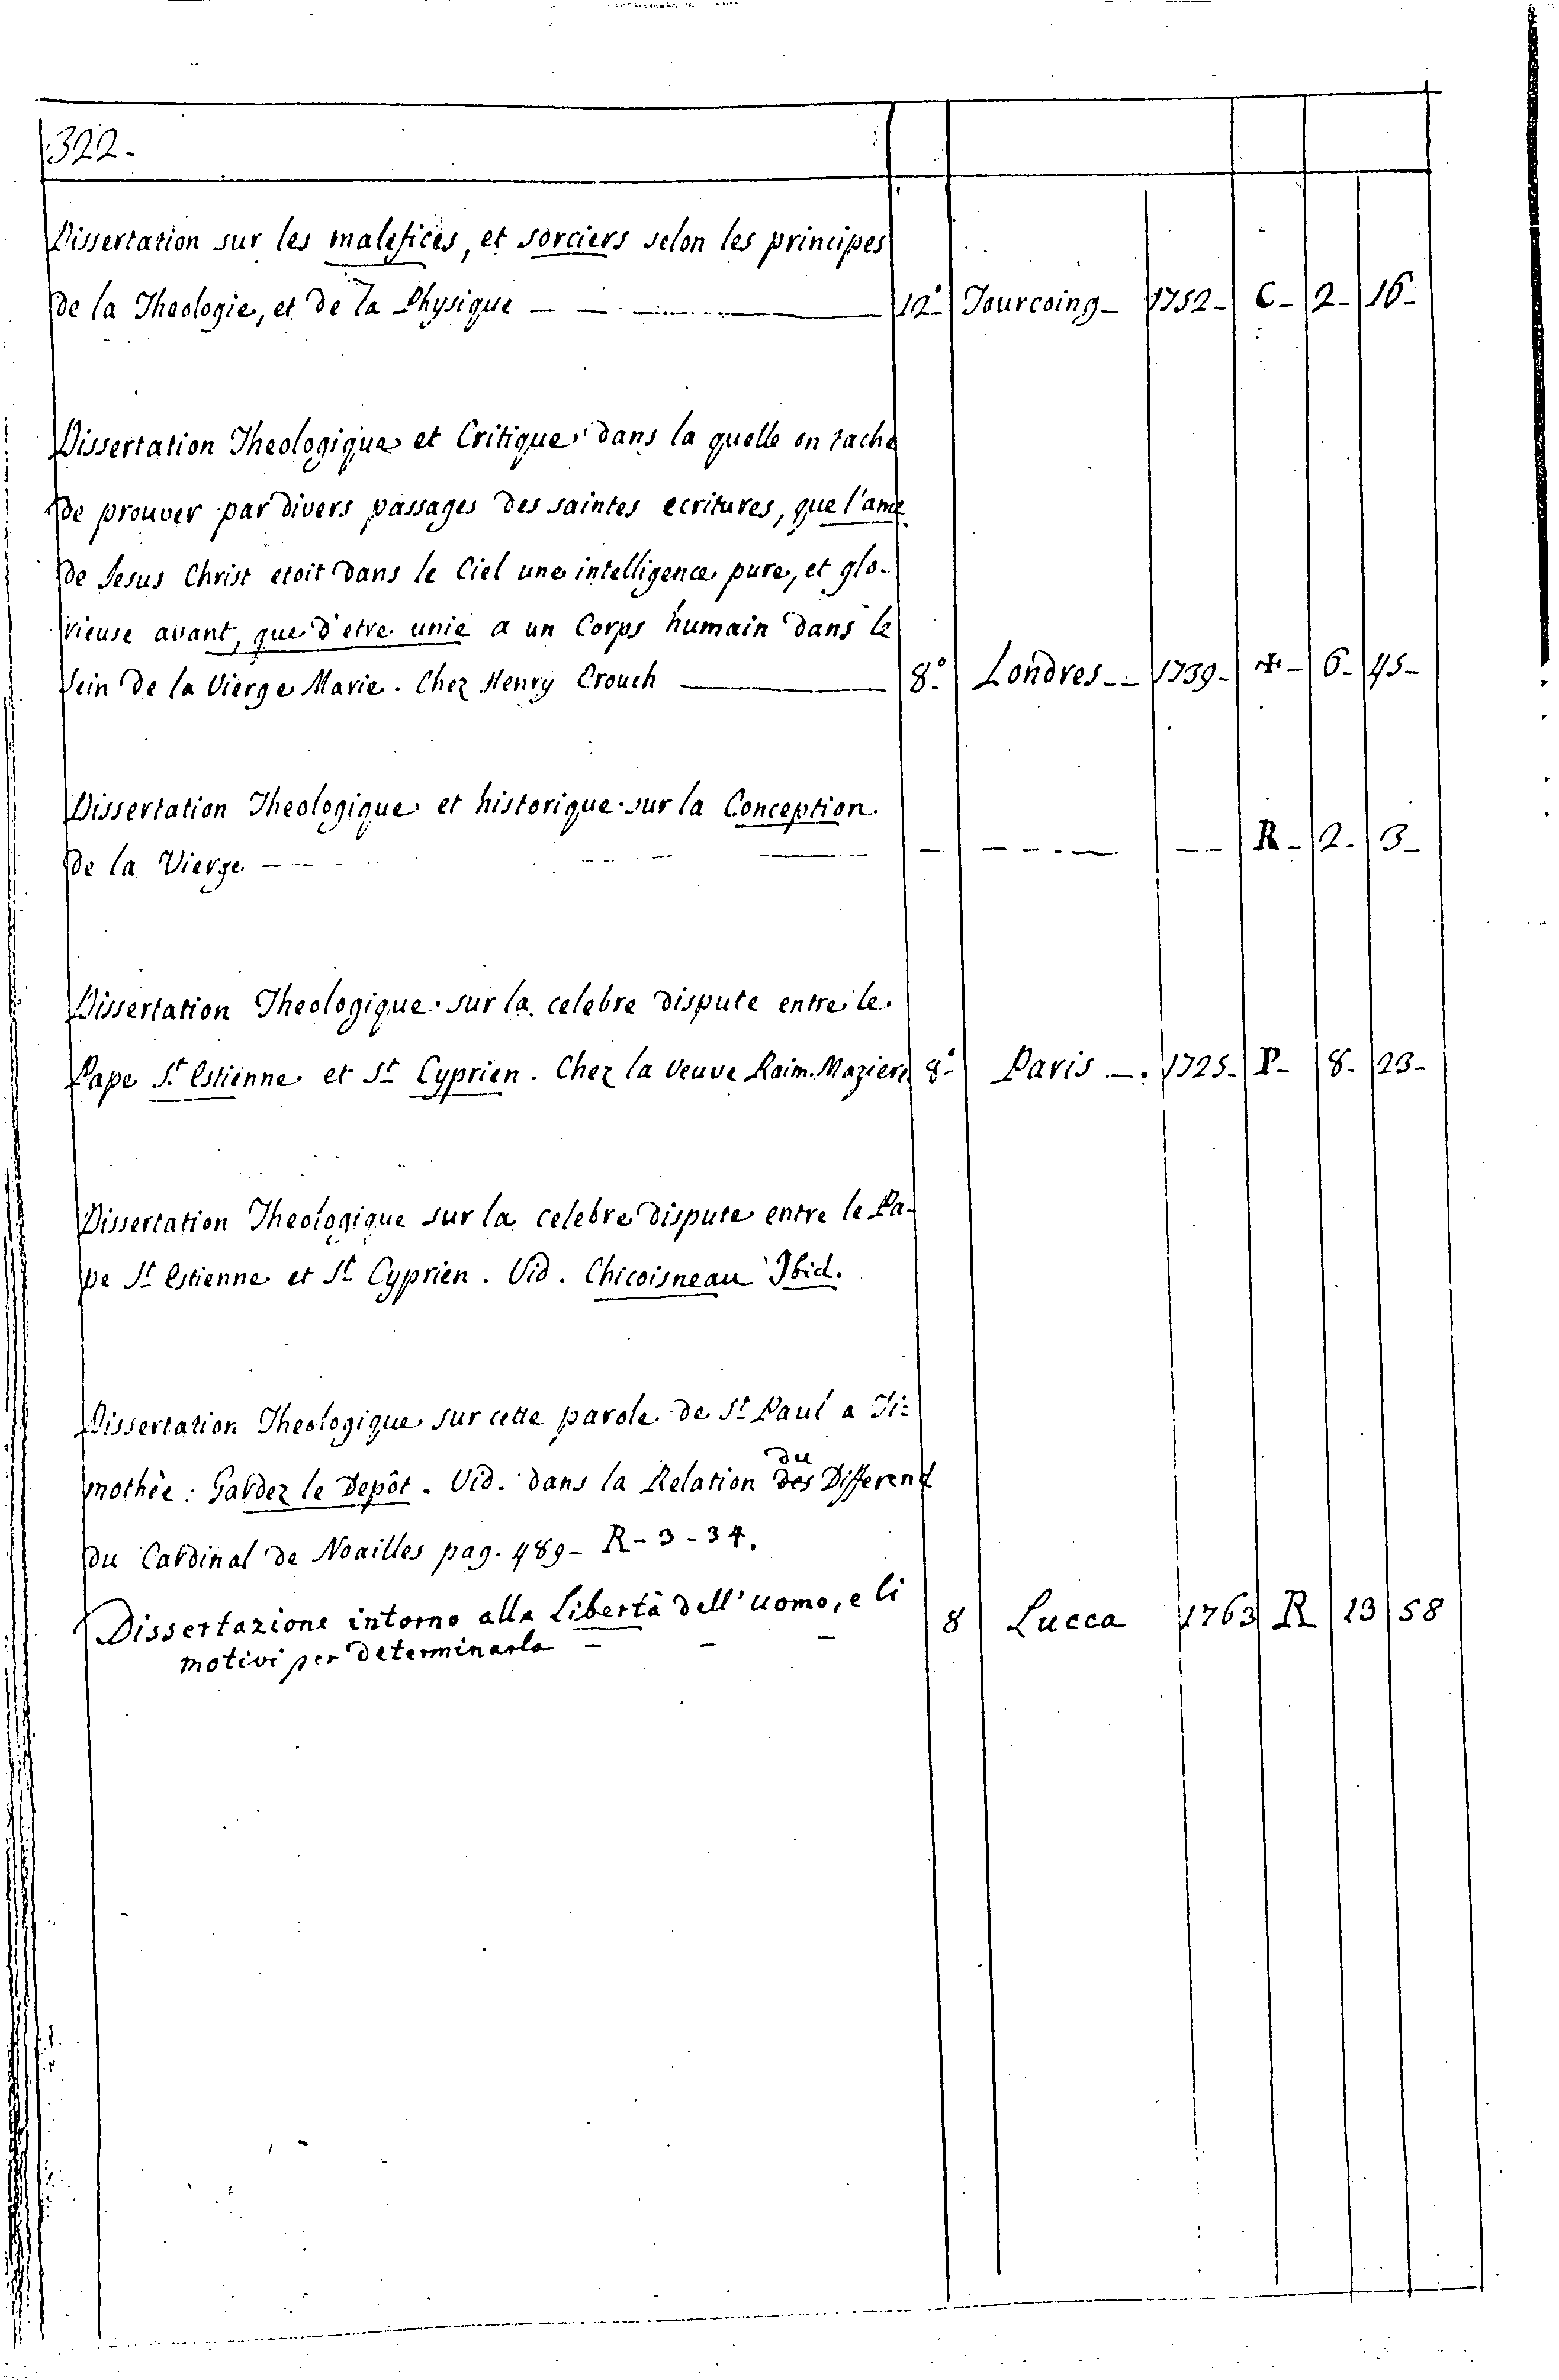 322.
Dissertation sur les malefices, et sorciers selon les principes
de la Theologie, et de la Physique — 12° Tourcoing 1752 C 2 16
Dissertation Theologique et Critique dans la quelle on tache
de prouver par divers passages des saintes ecritures, que l'ame
de Jesus Christ etoit dans le Ciel une intelligence pure, et glo-
rieuse avant, que d'etre unie a un Corps humain dans le
sein de la Vierge Marie. Chez Henry Crouch — 8° Londres 1739 ✠ 6 45
Dissertation Theologique et historique sur la Conception
de la Vierge — — — — R 2 3
Dissertation Theologique sur la celebre dispute entre le
Pape St Estienne et St Cyprien. Chez la Veuve Raim. Maziere 8° Paris 1725 P 8 23
Dissertation Theologique sur la celebre dispute entre le Pa-
pe St Estienne et St Cyprien. Vid. Chicoisneau Ibid.
Dissertation Theologique sur cette parole de St Paul a Ti-
mothèe: Gardez le Depôt. Vid. dans la Relation des du Different
du Cardinal de Noailles pag. 489 R-3-34.
Dissertazione intorno alla Libertà dell'uomo, e li 8 Lucca 1763 R 13 58
motivi per determinarla — — —